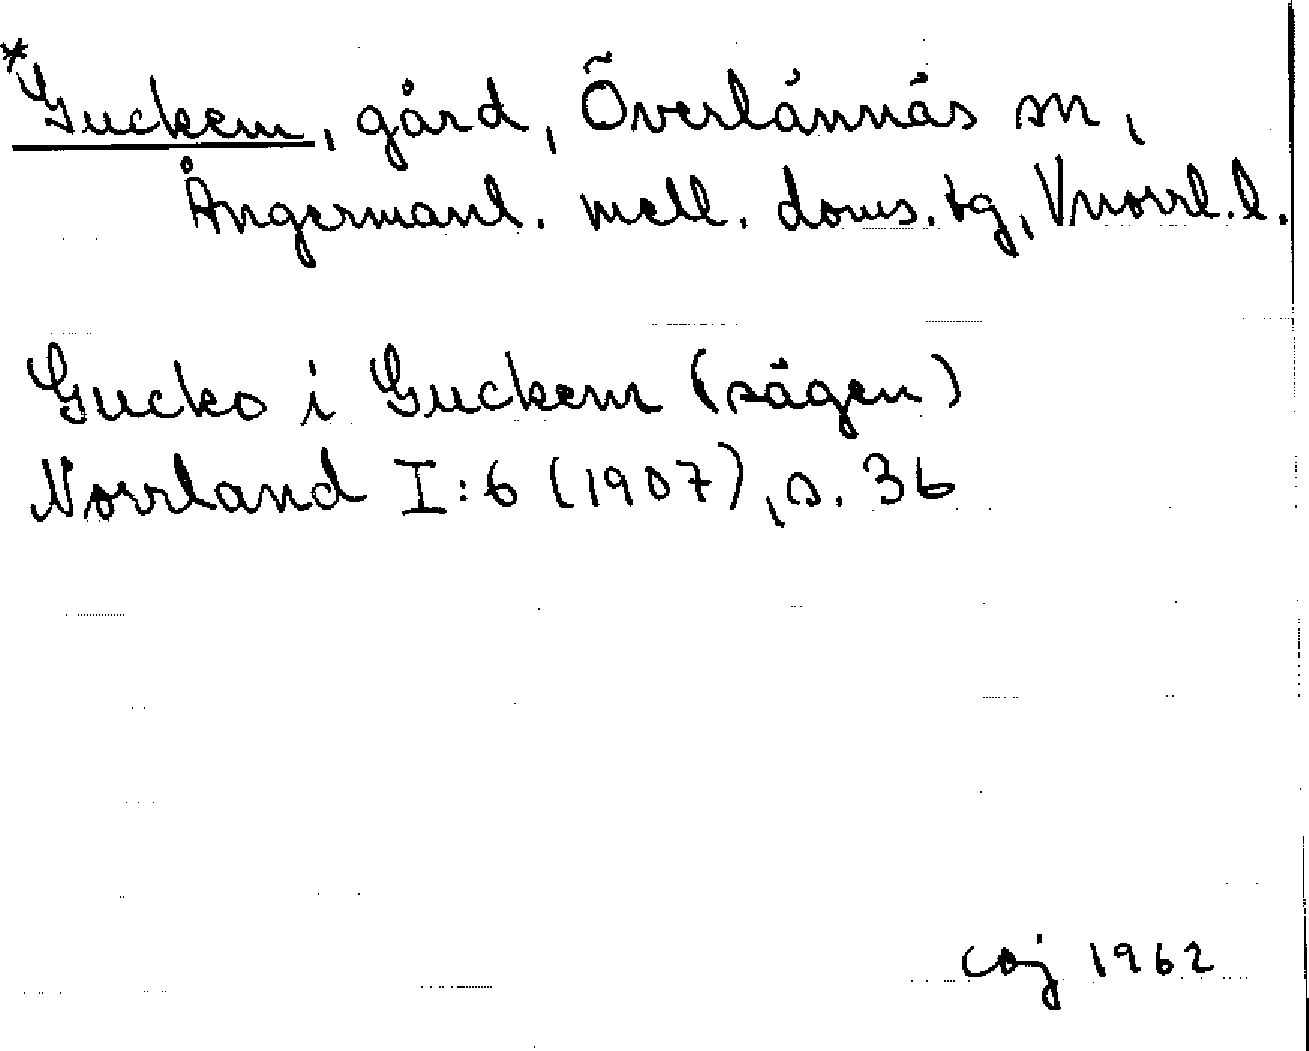 *Guckem, gård, Överlännäs sn,
Ångermanl. mell. doms. tg, Vnorrl. l.
Gucko i Guckem (sägen)
Norrland I:6 (1907), s. 36
coj 1962